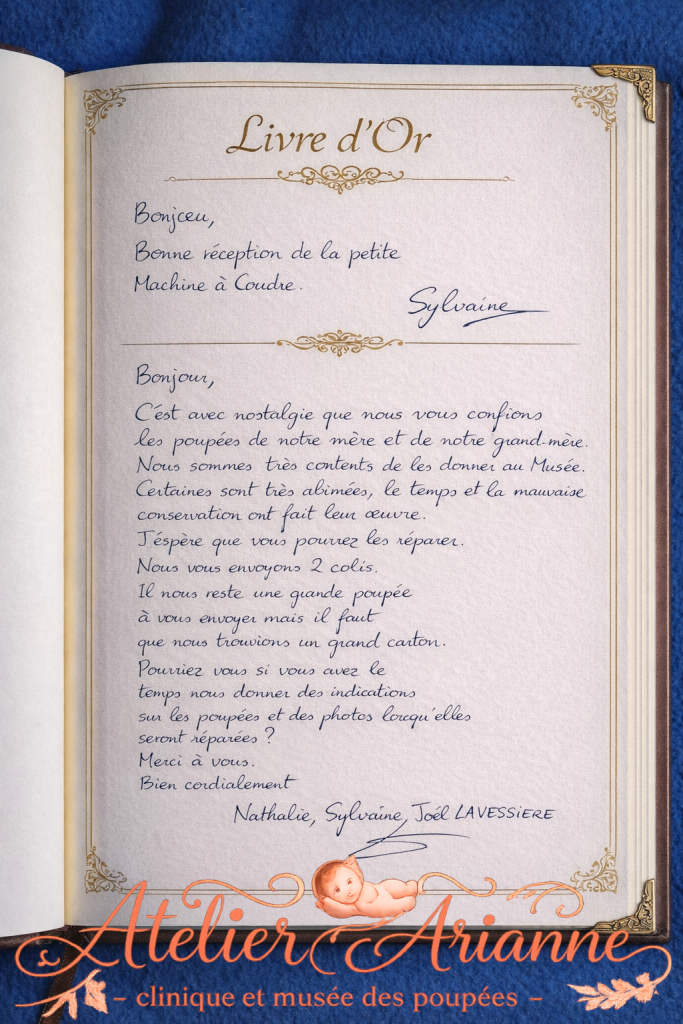 Livre d'Or
Bonjceu,
Bonne réception de la petite
Machine à Coudre.
Sylvaine
Bonjour,
C'ést avec nostalgie que nous vous confions
les poupées de notre mère et de notre grand-mère.
Nous sommes très contents de les donner au Musée.
Certaines sont très abimées, le temps et la mauvaise
conservation ont fait leur œuvre.
J'éspère que vous pourrez les réparer.
Nous vous envoyons 2 colis.
Il nous reste une grande poupée
à vous envoyer mais il faut
que nous trouvions un grand carton.
Pourriez vous si vous avez le
temps nous donner des indications
sur les poupées et des photos lorsqu'elles
seront réparées ?
Merci à vous.
Bien cordialement
Nathalie, Sylvaine, Joél LAVESSIERE
Atelier Arianne
- clinique et musée des poupées -